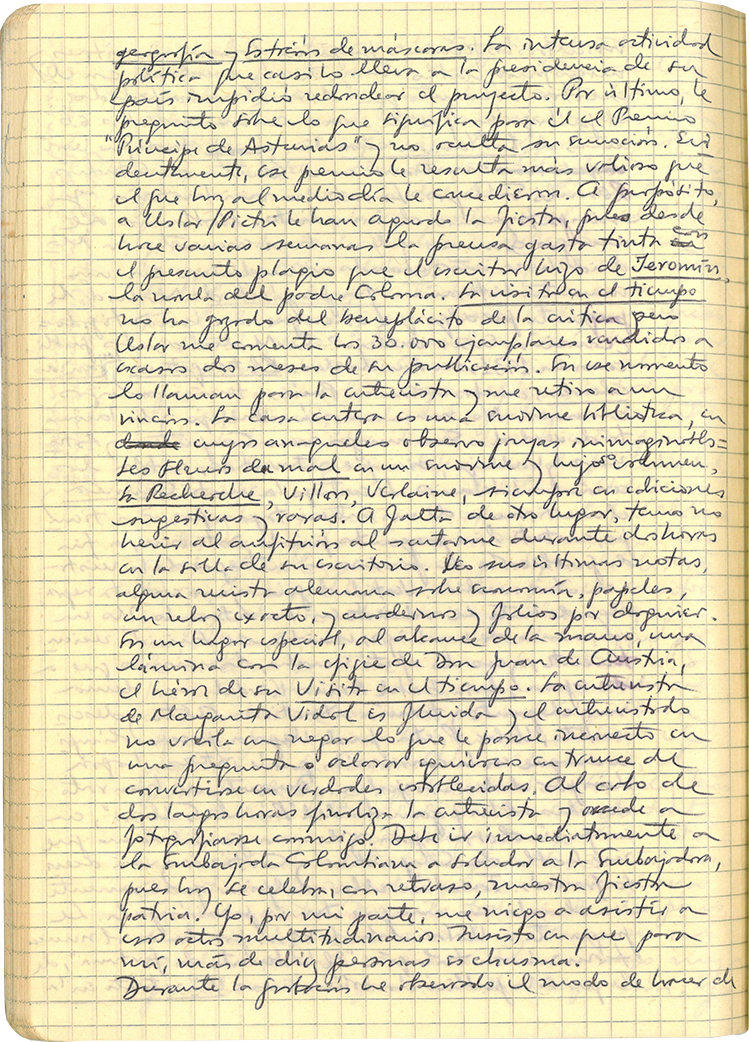 geografía y Estación de máscaras. La intensa actividad
política que casi lo lleva a la presidencia de su
país impidió redondear el proyecto. Por último, le
pregunto sobre lo que significa para él el Premio
"Príncipe de Asturias" y no oculta su emoción. Evi
dentemente, ese premio le resulta más valioso que
el que hoy al mediodía le concedieron. A propósito,
a Uslar Pietri le han aguado la fiesta, pues desde
hace varias semanas la prensa gasta tinta con
el presunto plagio que el escritor hizo de Jeromín,
la novela del padre Coloma. La visita en el tiempo
no ha gozado del beneplácito de la crítica pero
Uslar me comenta los 30.000 ejemplares vendidos a
escasos dos meses de su publicación. En ese momento
lo llaman para la entrevista y me retiro a un
rincón. La casa entera es una enorme biblioteca, en
cuyos anaqueles observo joyas inimaginables=
Les Fleurs du mal en un enorme y lujoso volumen,
La Recherche, Villon, Verlaine, siempre en ediciones
sugestivas y raras. A falta de otro lugar, temo no
herir al anfitrión al sentarme durante dos horas
en la silla de su escritorio. Veo sus últimas notas,
alguna revista alemana sobre economía, papeles,
un reloj exacto, y cuadernos y folios por doquier.
En un lugar especial, al alcance de la mano, una
lámina con la efigie de Don Juan de Austria,
el héroe de su Visita en el tiempo. La entrevista
de Margarita Vidal es fluida y el entrevistado
no vacila en negar lo que le parece incorrecto en
una pregunta o aclarar equívocos en trance de
convertirse en verdades establecidas. Al cabo de
dos largas horas finaliza la entrevista y accede a
fotografiarse conmigo. Debe ir inmediatamente a
la Embajada Colombiana a saludar a la Embajadora,
pues hoy se celebra, con retraso, nuestra fiesta
patria. Yo, por mi parte, me niego a asistir a
esos actos multitudinarios. Insisto en que para
mí, más de diez personas es chusma.
Durante la grabación he observado el modo de hacer de